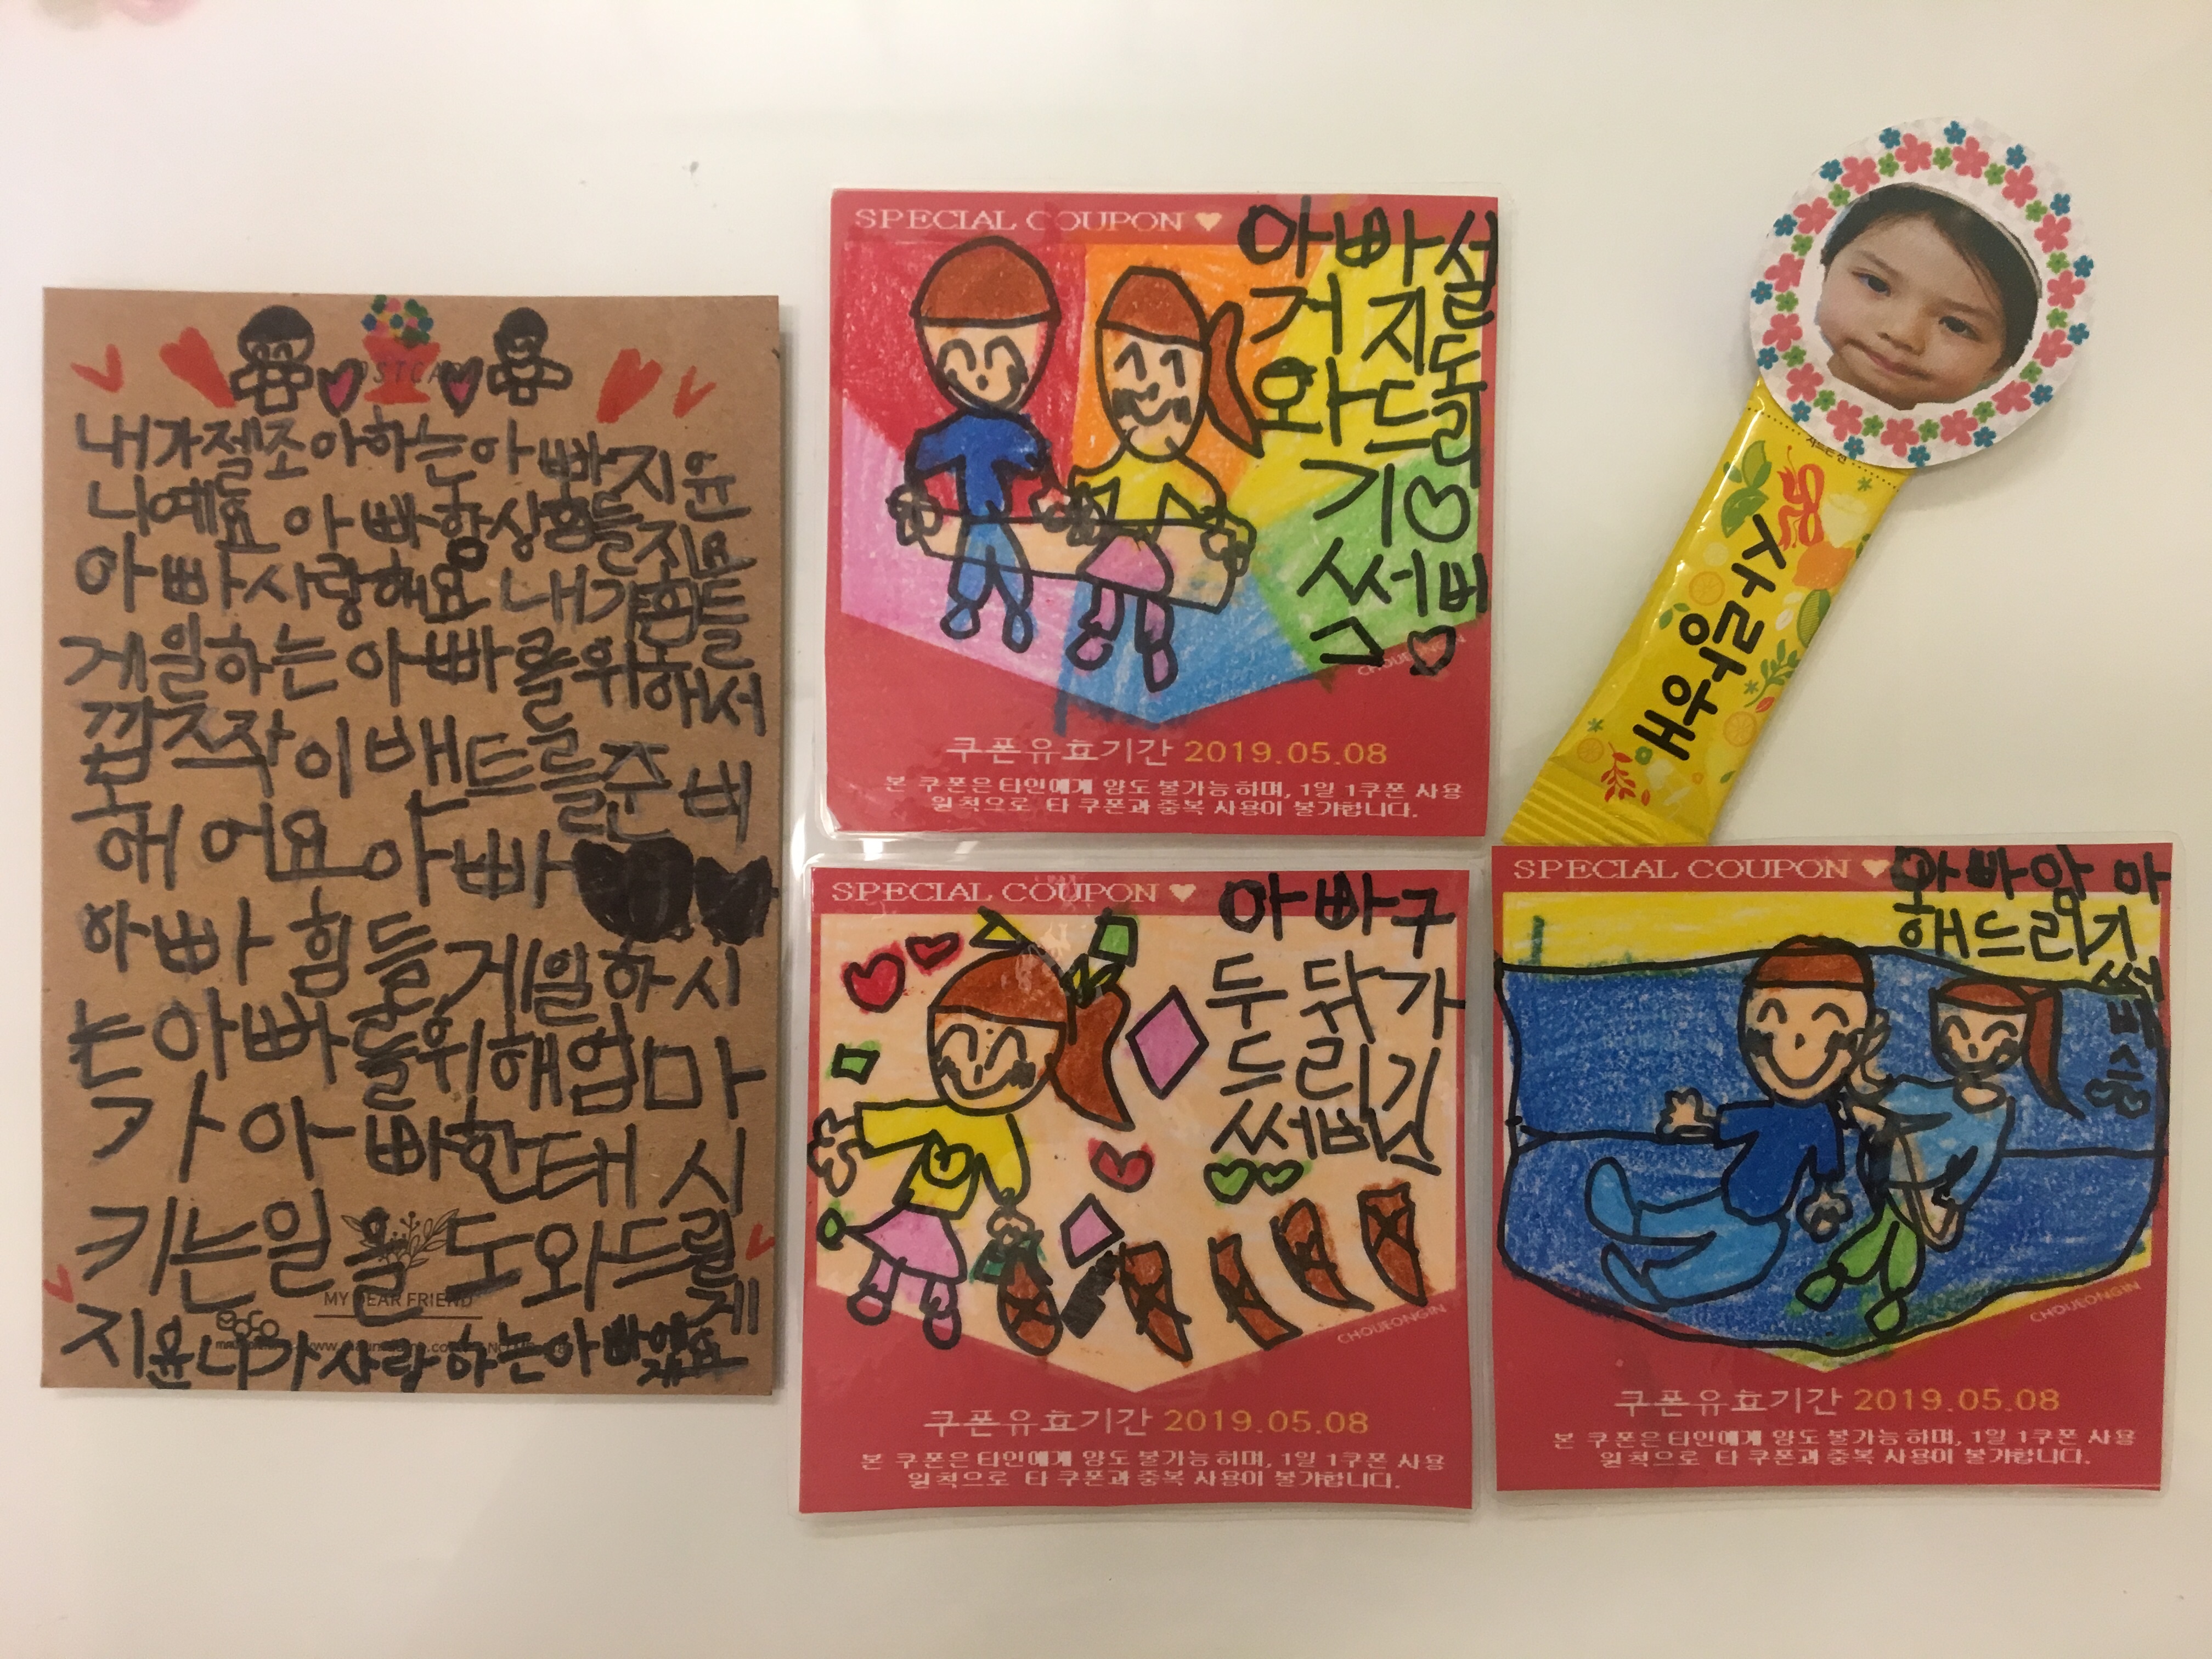 POSTCARD
내가젤조아하는아빠지윤
니예요 아빠항상힘들지요
아빠사랑해요 내가힘들
게일하는아빠를위해서
깜즈작이밴트를준비
해어요아빠
아빠힘들게일하시
는아빠를위해엄마
가아빠한태시
키는일을도와드릴
게
MY DEAR FRIEND
지윤니가사랑하는아빠였요
SPECIAL COUPON
아빠설
거지도
와드리
기
써비
스
CHOUEONGIN
쿠폰유효기간 2019.05.08
본 쿠폰은 타인에게 양도 불가능 하며, 1일 1쿠폰 사용
원칙으로 타 쿠폰과 중복 사용이 불가합니다.
SPECIAL COUPON
아빠구
두닦가
드리기
써비스
CHOUEONGIN
쿠폰유효기간 2019.05.08
본 쿠폰은 타인에게 양도 불가능 하며, 1일 1쿠폰 사용
원칙으로 타 쿠폰과 중복 사용이 불가합니다.
SPECIAL COUPON
아빠암마
해드리기
써
비
스
CHOUEONGIN
쿠폰유효기간 2019.05.08
본 쿠폰은 타인에게 양도 불가능 하며, 1일 1쿠폰 사용
원칙으로 타 쿠폰과 중복 사용이 불가합니다.
자르는선